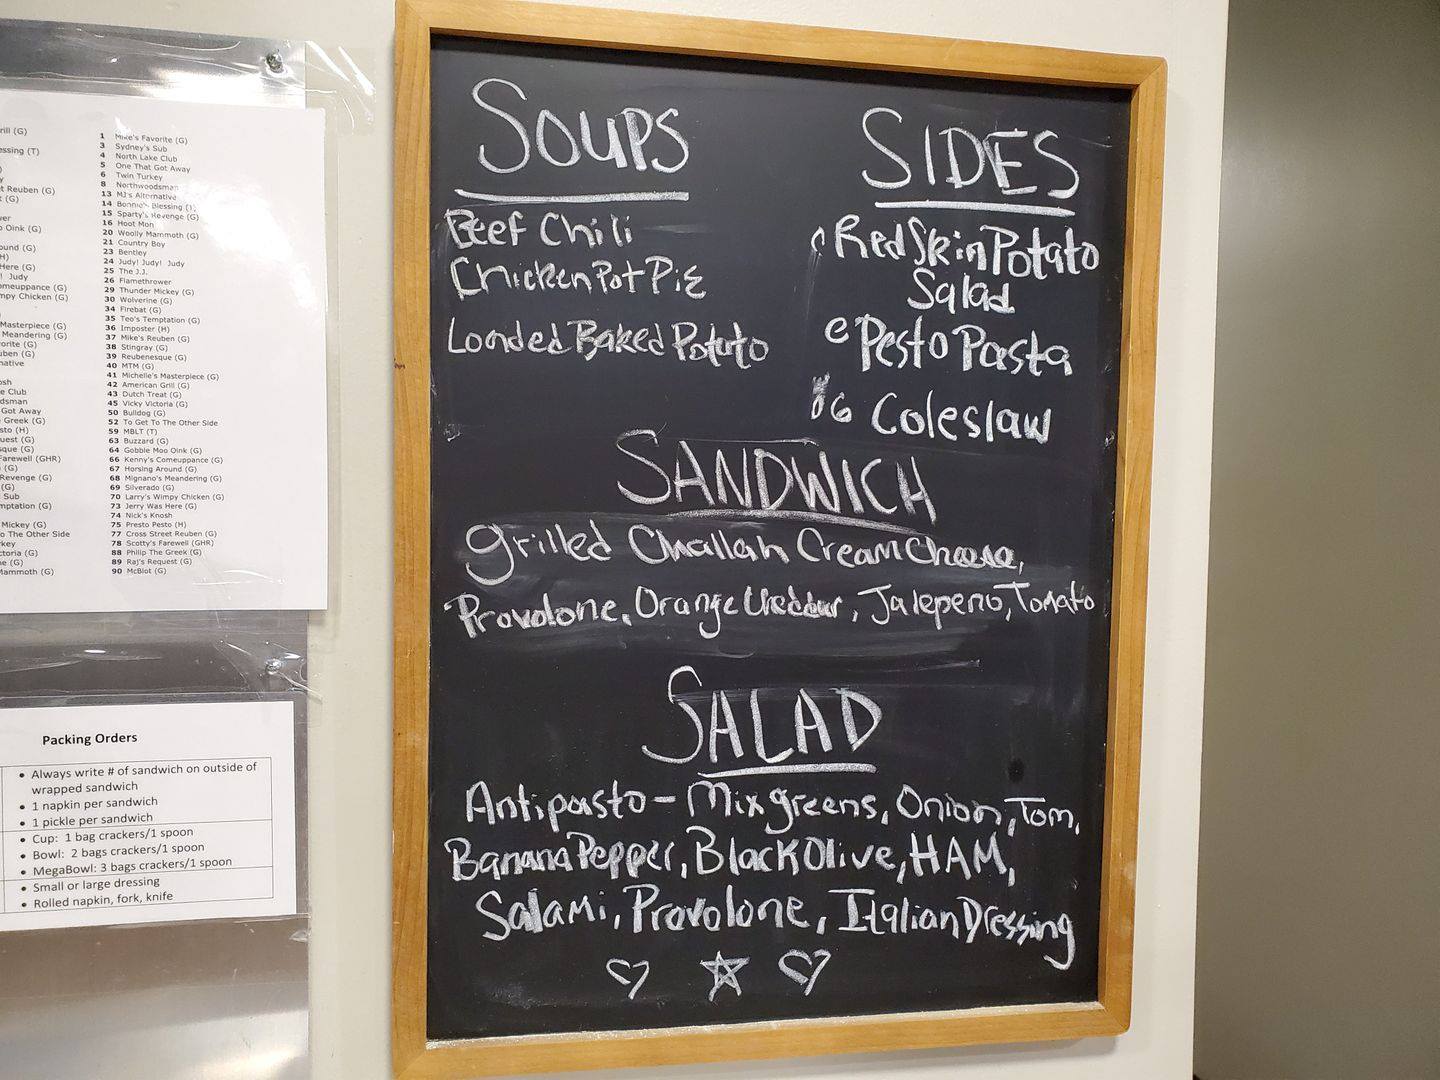 rill (G)
essing (T)
y
t Reuben (G)
t (G)
wer
o Oink (G)
ound (G)
H)
Here (G)
! Judy
omeuppance (G)
mpy Chicken (G)
)
Masterpiece (G)
Meandering (G)
vorite (G)
uben (G)
native
osh
e Club
dsman
Got Away
Greek (G)
sto (H)
uest (G)
sque (G)
Farewell (GHR)
(G)
Revenge (G)
(G)
Sub
mptation (G)
Mickey (G)
o The Other Side
rkey
ctoria (G)
e (G)
Mammoth (G)
1 Mike's Favorite (G)
3 Sydney's Sub
4 North Lake Club
5 One That Got Away
6 Twin Turkey
8 Northwoodsman
13 MJ's Alternative
14 Bonnie's Blessing (T)
15 Sparty's Revenge (G)
16 Hoot Mon
20 Woolly Mammoth (G)
21 Country Boy
23 Bentley
24 Judy! Judy! Judy
25 The J.J.
26 Flamethrower
29 Thunder Mickey (G)
30 Wolverine (G)
34 Firebat (G)
35 Teo's Temptation (G)
36 Imposter (H)
37 Mike's Reuben (G)
38 Stingray (G)
39 Reubenesque (G)
40 MTM (G)
41 Michelle's Masterpiece (G)
42 American Grill (G)
43 Dutch Treat (G)
45 Vicky Victoria (G)
50 Bulldog (G)
52 To Get To The Other Side
59 MBLT (T)
63 Buzzard (G)
64 Gobble Moo Oink (G)
66 Kenny's Comeuppance (G)
67 Horsing Around (G)
68 Mignano's Meandering (G)
69 Silverado (G)
70 Larry's Wimpy Chicken (G)
73 Jerry Was Here (G)
74 Nick's Knosh
75 Presto Pesto (H)
77 Cross Street Reuben (G)
78 Scotty's Farewell (GHR)
88 Philip The Greek (G)
89 Raj's Request (G)
90 McBlot (G)
Packing Orders
• Always write # of sandwich on outside of
wrapped sandwich
• 1 napkin per sandwich
• 1 pickle per sandwich
• Cup: 1 bag crackers/1 spoon
• Bowl: 2 bags crackers/1 spoon
• MegaBowl: 3 bags crackers/1 spoon
• Small or large dressing
• Rolled napkin, fork, knife
SOUPS
Beef Chili
Chicken Pot Pie
Loaded Baked Potato
SIDES
Red Skin Potato
Salad
Pesto Pasta
Coleslaw
SANDWICH
Grilled Challah Cream Cheese,
Provolone, Orange Cheddar, Jalepeno, Tomato
SALAD
Antipasto - Mix greens, Onion, Tom,
Banana Pepper, Black Olive, HAM,
Salami, Provolone, Italian Dressing